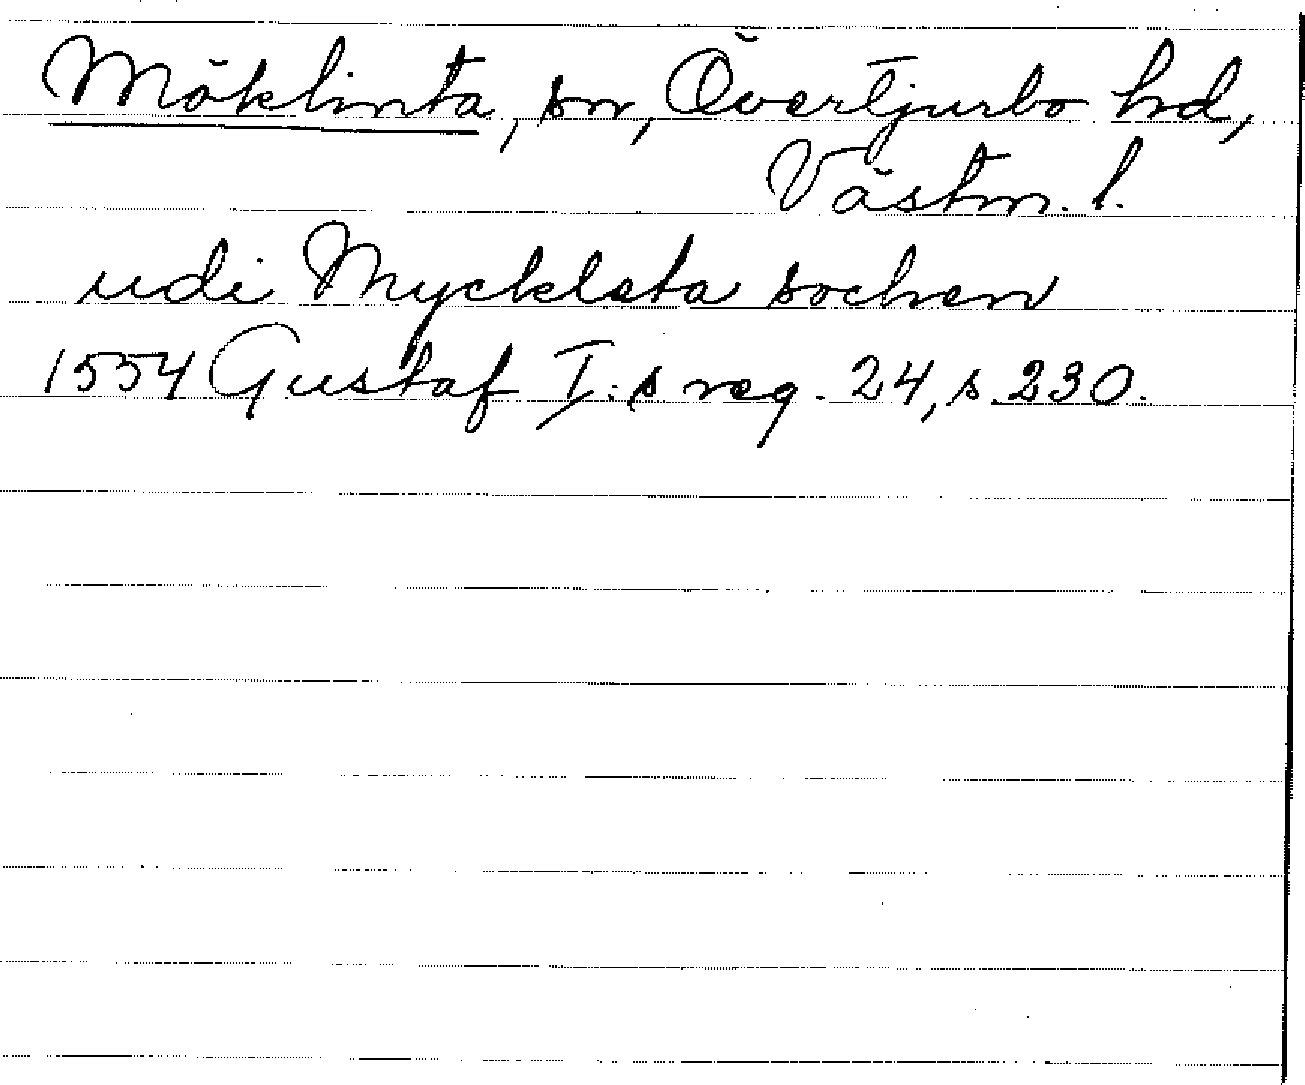 Möklinta, sn, Övertjurbo hd,
Västm. l.
udi Mycklsta sochen
1554 Gustaf I:s reg. 24, s. 230.